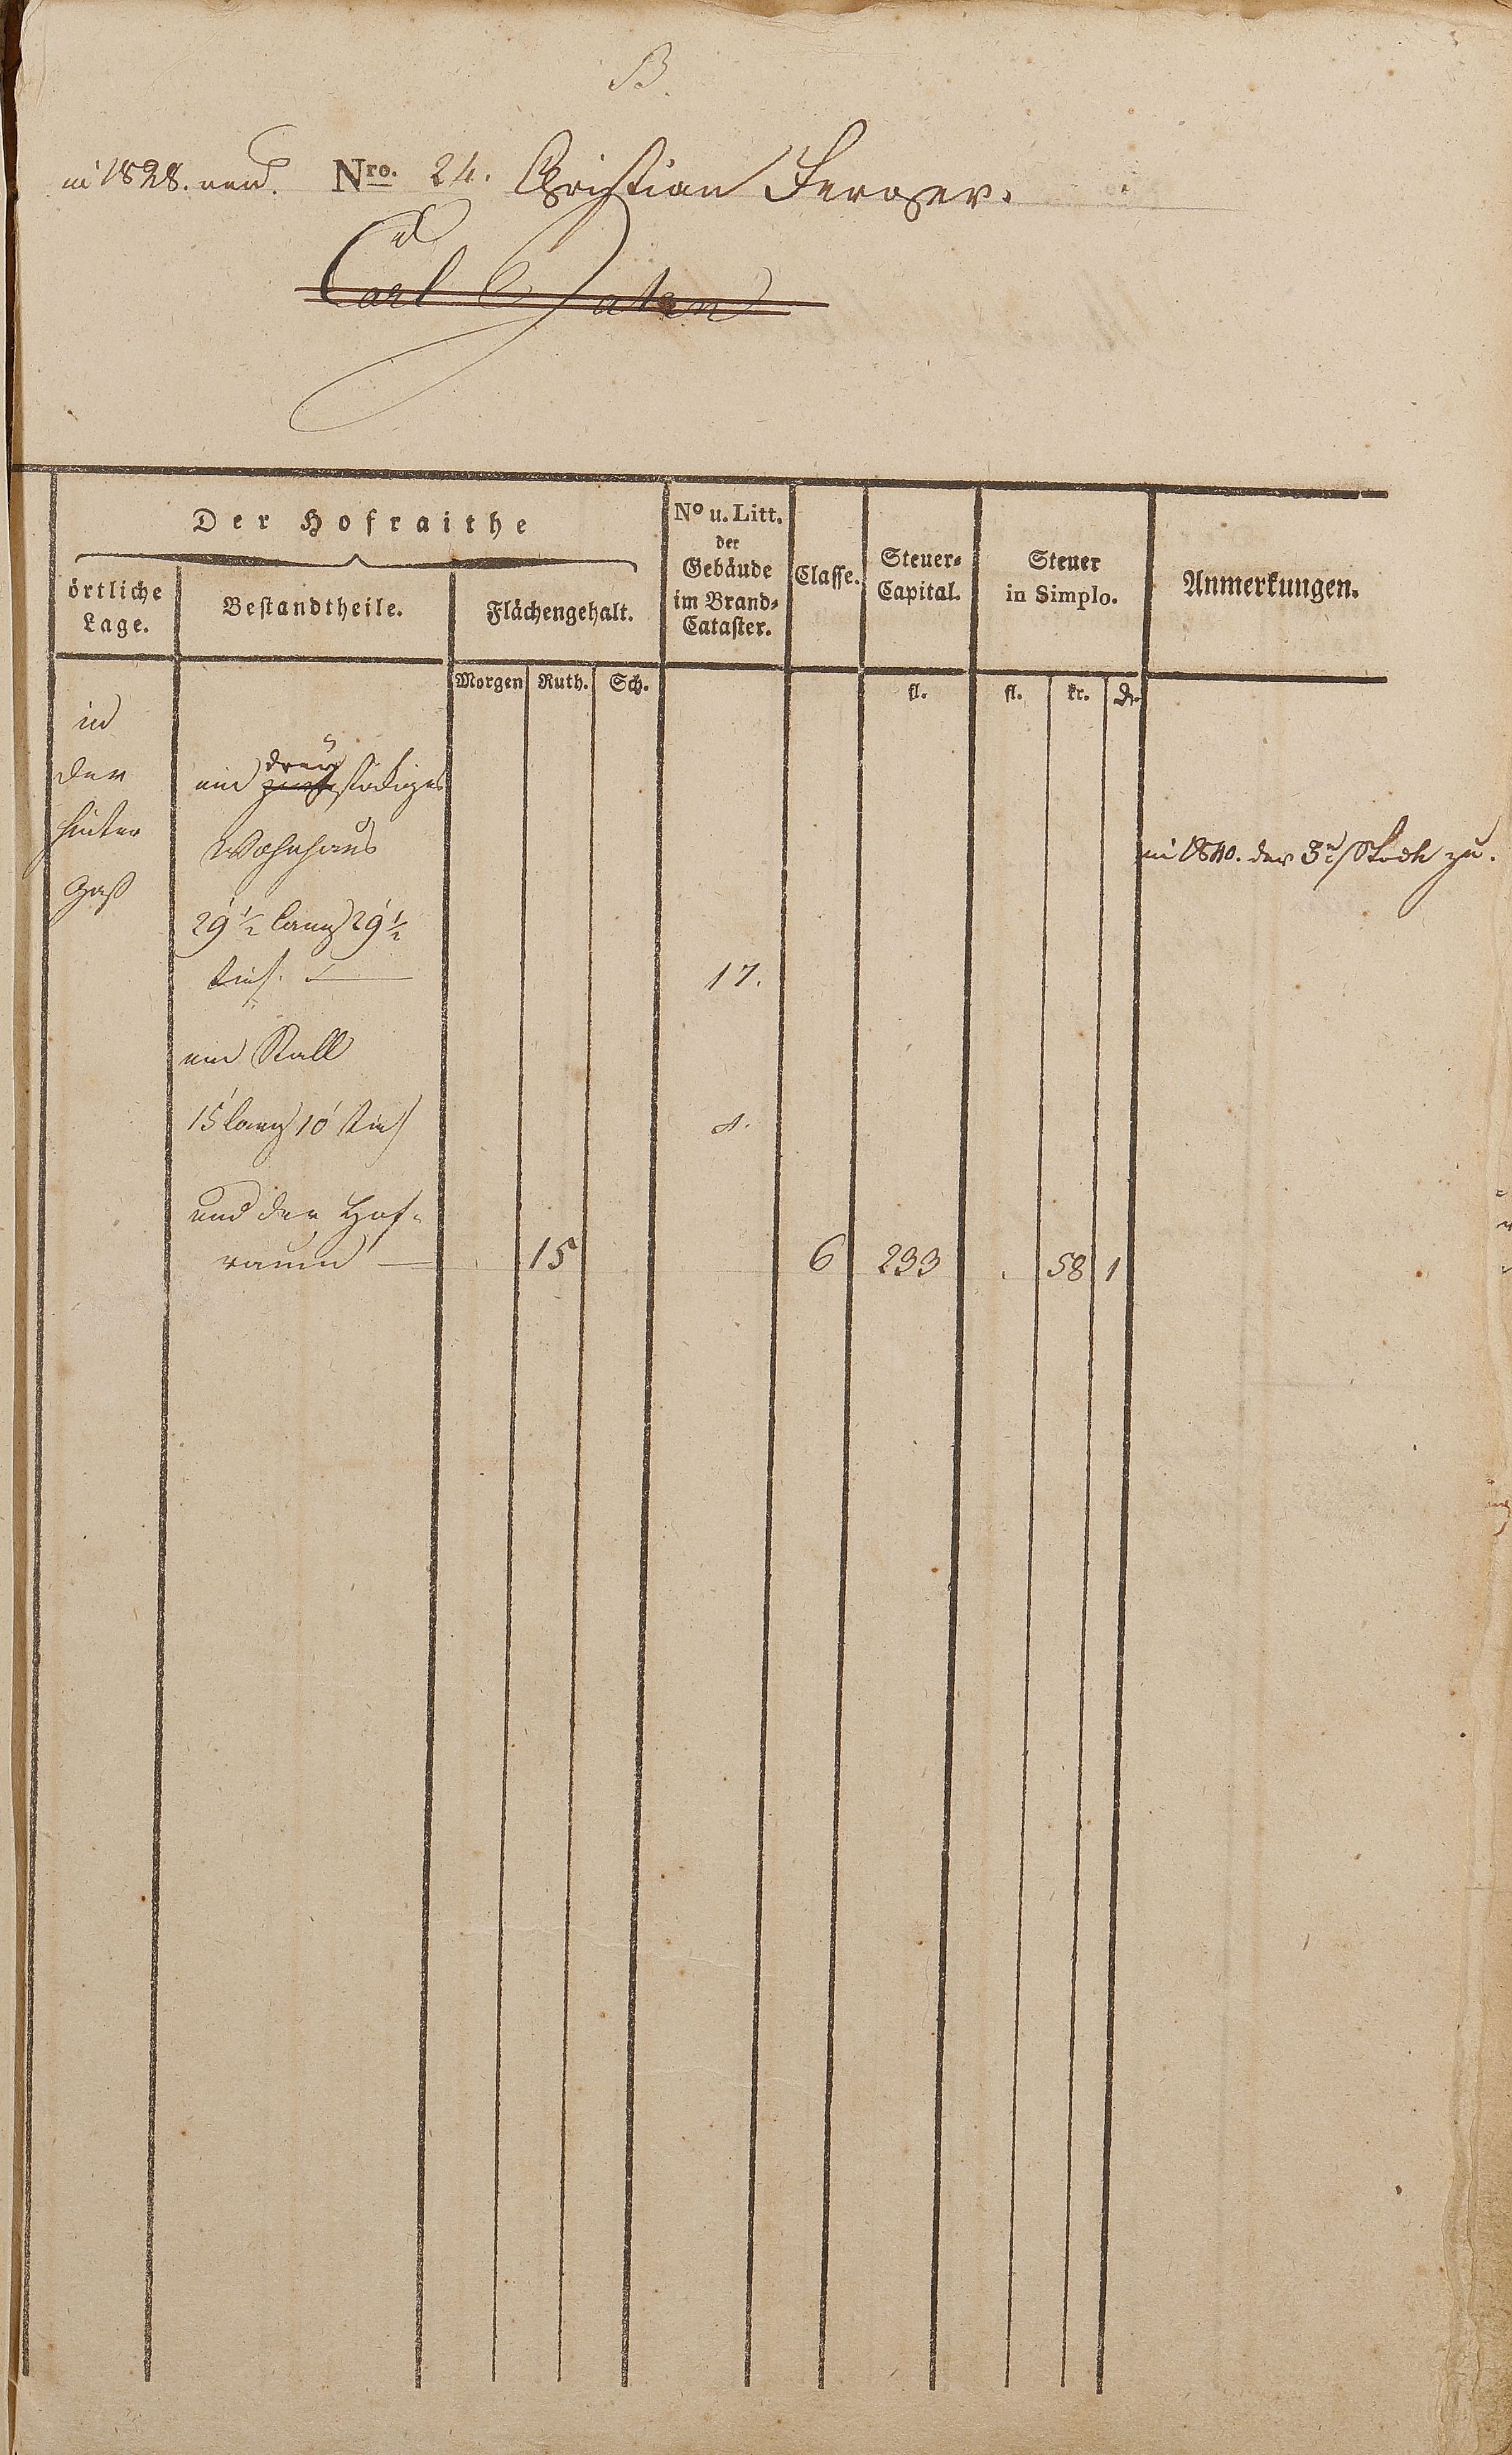 B.
in 1828. neu. Nro. 24. Christian Ferger.
Carl
Der Hofraithe
örtliche Lage.
Bestandtheile.
Flächengehalt.
No u. Litt. der Gebäude im Brand-Cataster.
Classe.
Steuer-Capital.
Steuer in Simplo.
Anmerkungen.
Morgen Ruth. Sch. fl. fl. kr. d.
in
der
hinter
Gaß
drey
ein zwey stökiges
Wohnhaus
29'½ lang 29'½
tief. 17.
in 1840. der 3te Stock zu.
ein Stall
15' lang 10' tief a.
und der Hof-
raum 15 6 233 . 58 1